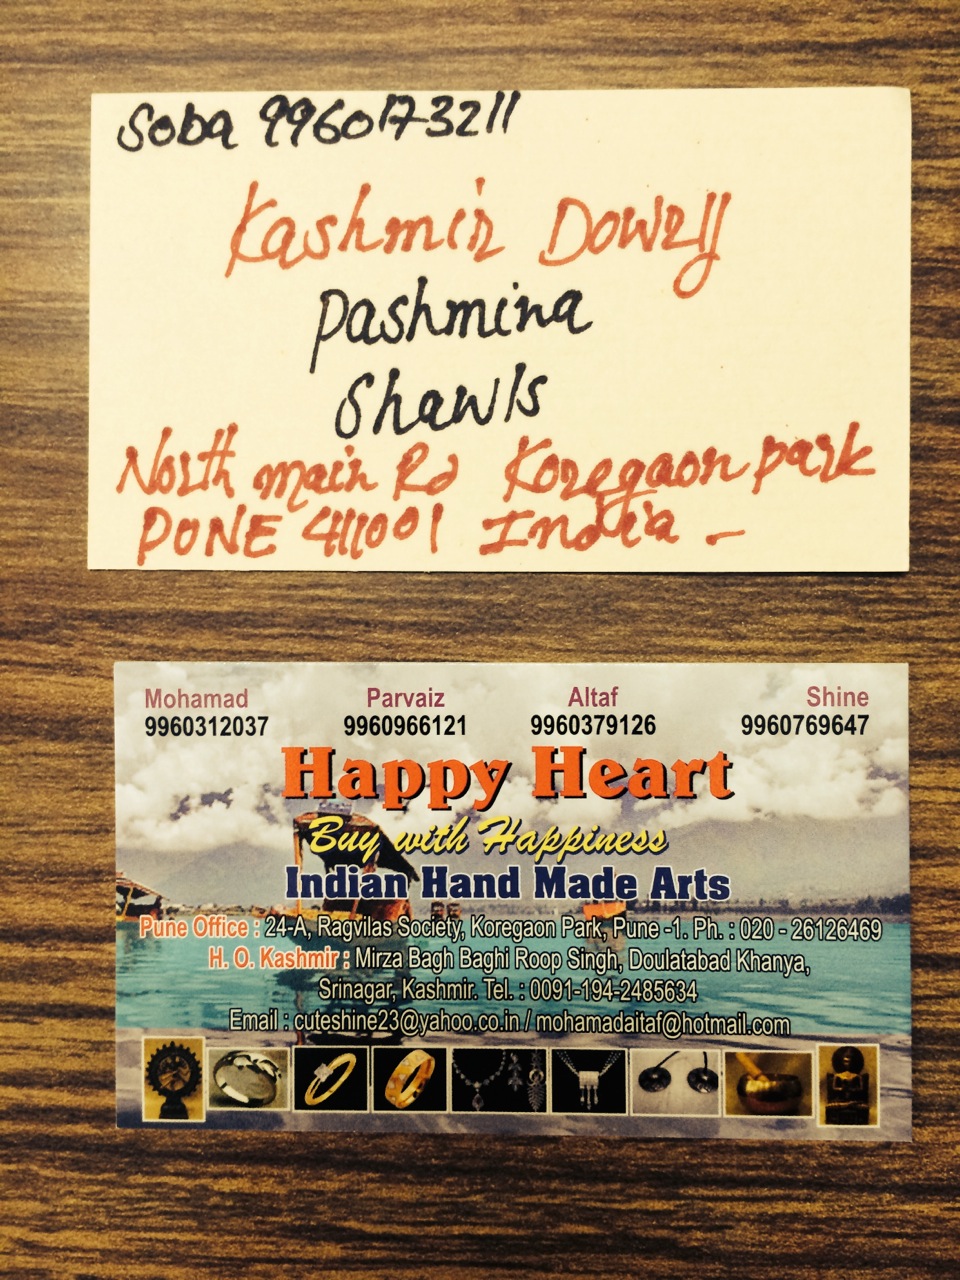 Soba 9960173211
Kashmir Dowry
Pashmina
Shawls
North main Rd Koregaon park
PUNE 411001 India -
Mohamad Parvaiz Altaf Shine
9960312037 9960966121 9960379126 9960769647
Happy Heart
Buy with Happiness
Indian Hand Made Arts
Pune Office : 24-A, Ragvilas Society, Koregaon Park, Pune -1. Ph. : 020 - 26126469
H. O. Kashmir : Mirza Bagh Baghi Roop Singh, Doulatabad Khanya,
Srinagar, Kashmir. Tel. : 0091-194-2485634
Email : cuteshine23@yahoo.co.in / mohamadaitaf@hotmail.com